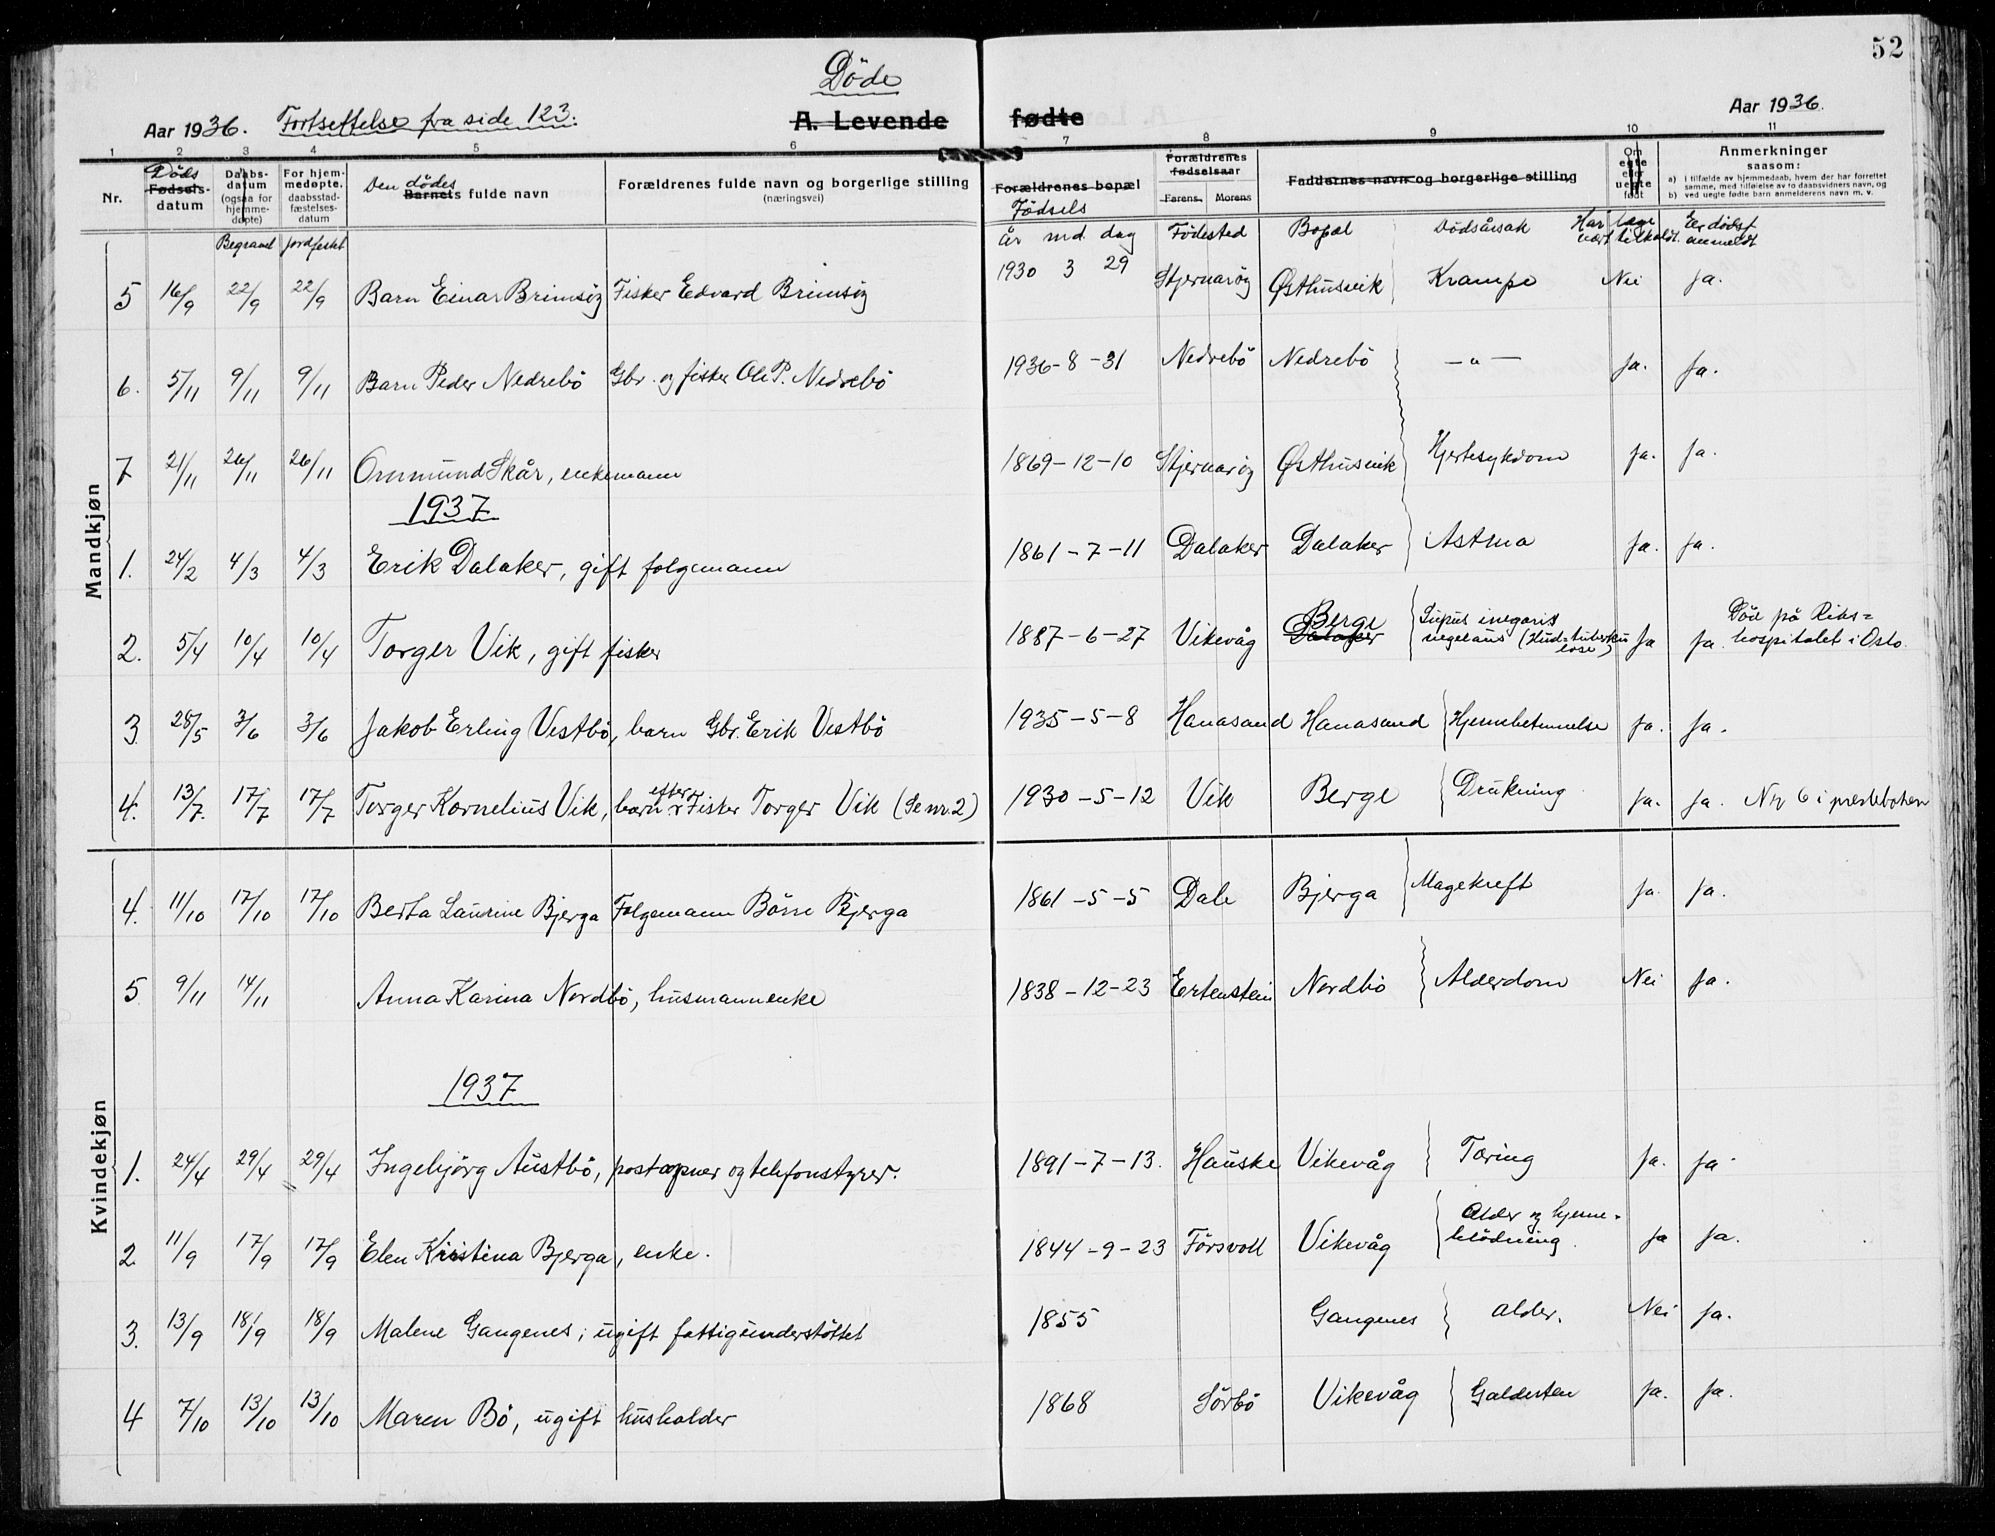 52
Døde
Aar 1936. Fortsettelse fra side 123. A. Levende fødte Aar 1936.
1 2 3 4 5 6 7 8 9 10 11
Nr. Døds Fødsels-datum Daabs-datum (ogsaa for hjemme-døpte) For hjem-medøpte, daabsstad-fæstelses-datum Den dødes Barnets fulde navn Forældrenes fulde navn og borgerlige stilling (næringsvei) Forældrenes bopæl Forældrenes fødselsaar Farens. Morens Faddernes navn og borgerlige stilling Om egte eller uegte født Anmerkninger saasom:
a) i tilfælde av hjemmedaab, hvem der har forrettet samme, med tilføielse av to daabsvidners navn, og
b) ved uegte fødte barn anmelderens navn m. v.
Begravet Jordfestet Fødsels år md. dag Fødested Bopæl Dødsårsak Har læge vært tilkaldt. Er dødsf. anmeldt
Mandkjøn
5 16/9 22/9 22/9 Barn Einar Brimsöy Fisker Edvard Brimsöy 1930 3 29 Stjernaröy Østhusvik Krampe Nei ja.
6. 5/11 9/11 9/11 Barn Peder Nedrebö Gbr. og fisker Ole P. Nedrebö 1936-8-31 Nedrebö Nedrebö -"- ja. ja.
7 21/11 26/11 26/11 Ommund Skår, enkemann 1869-12-10 Stjernaröy Østhusvik Hjertesykdom ja. ja.
1937
1. 24/2 4/3 4/3 Erik Dalaker, gift folgemann 1861-7-11 Dalaker Dalaker Astma ja. ja.
2. 5/4 10/4 10/4 Torger Vik, gift fisker 1887-6-27 Vikevåg Berge Dalaker (Hud=tuberkulose) ja ja. Död på Riks=hospitalet i Oslo.
3. 28/5 3/6 3/6 Jakob Erling Vestbö, barn Gbr. Erik Vestbö 1935-5-8 Hanasand Hanasand Hjernebetennelse ja. ja.
4. 13/7. 17/7 17/7 Torger Kornelius Vik, barn efter Fisker Torger Vik (Se nr. 2) 1930-5-12 Vik Berge Drukning ja. ja. Nr 6 i presteboken
Kvindekjøn
4. 11/10 17/10 17/10 Berta Laurine Bjerga Folgemann Börre Bjerga 1861-5-5 Dale Bjerga Magekreft ja. ja.
5 9/11 14/11 Anna Karina Nordbö, husmannenke 1838-12-23 Ertenstein Nordbö Alderdom Nei ja.
1937
1. 24/4 29/4 29/4 Ingebjörg Austbö, postopner og telefonstyrer. 1891-7-13. Hauske Vikevåg Tæring ja. ja.
2. 11/9 17/9 17/9 Elen Kristina Bjerga, enke. 1844-9-23 Försvoll Vikevåg Alder og hjerne-blödning. ja ja.
3. 13/9 18/9 18/9 Malene Gangenes, ugift fattigunderstöttet 1855 Gangenes alder. Nei ja.
4 7/10 13/10 13/10 Maren Bö, ugift husholder 1868 Sörbö Vikevåg Galdesten ja. ja.